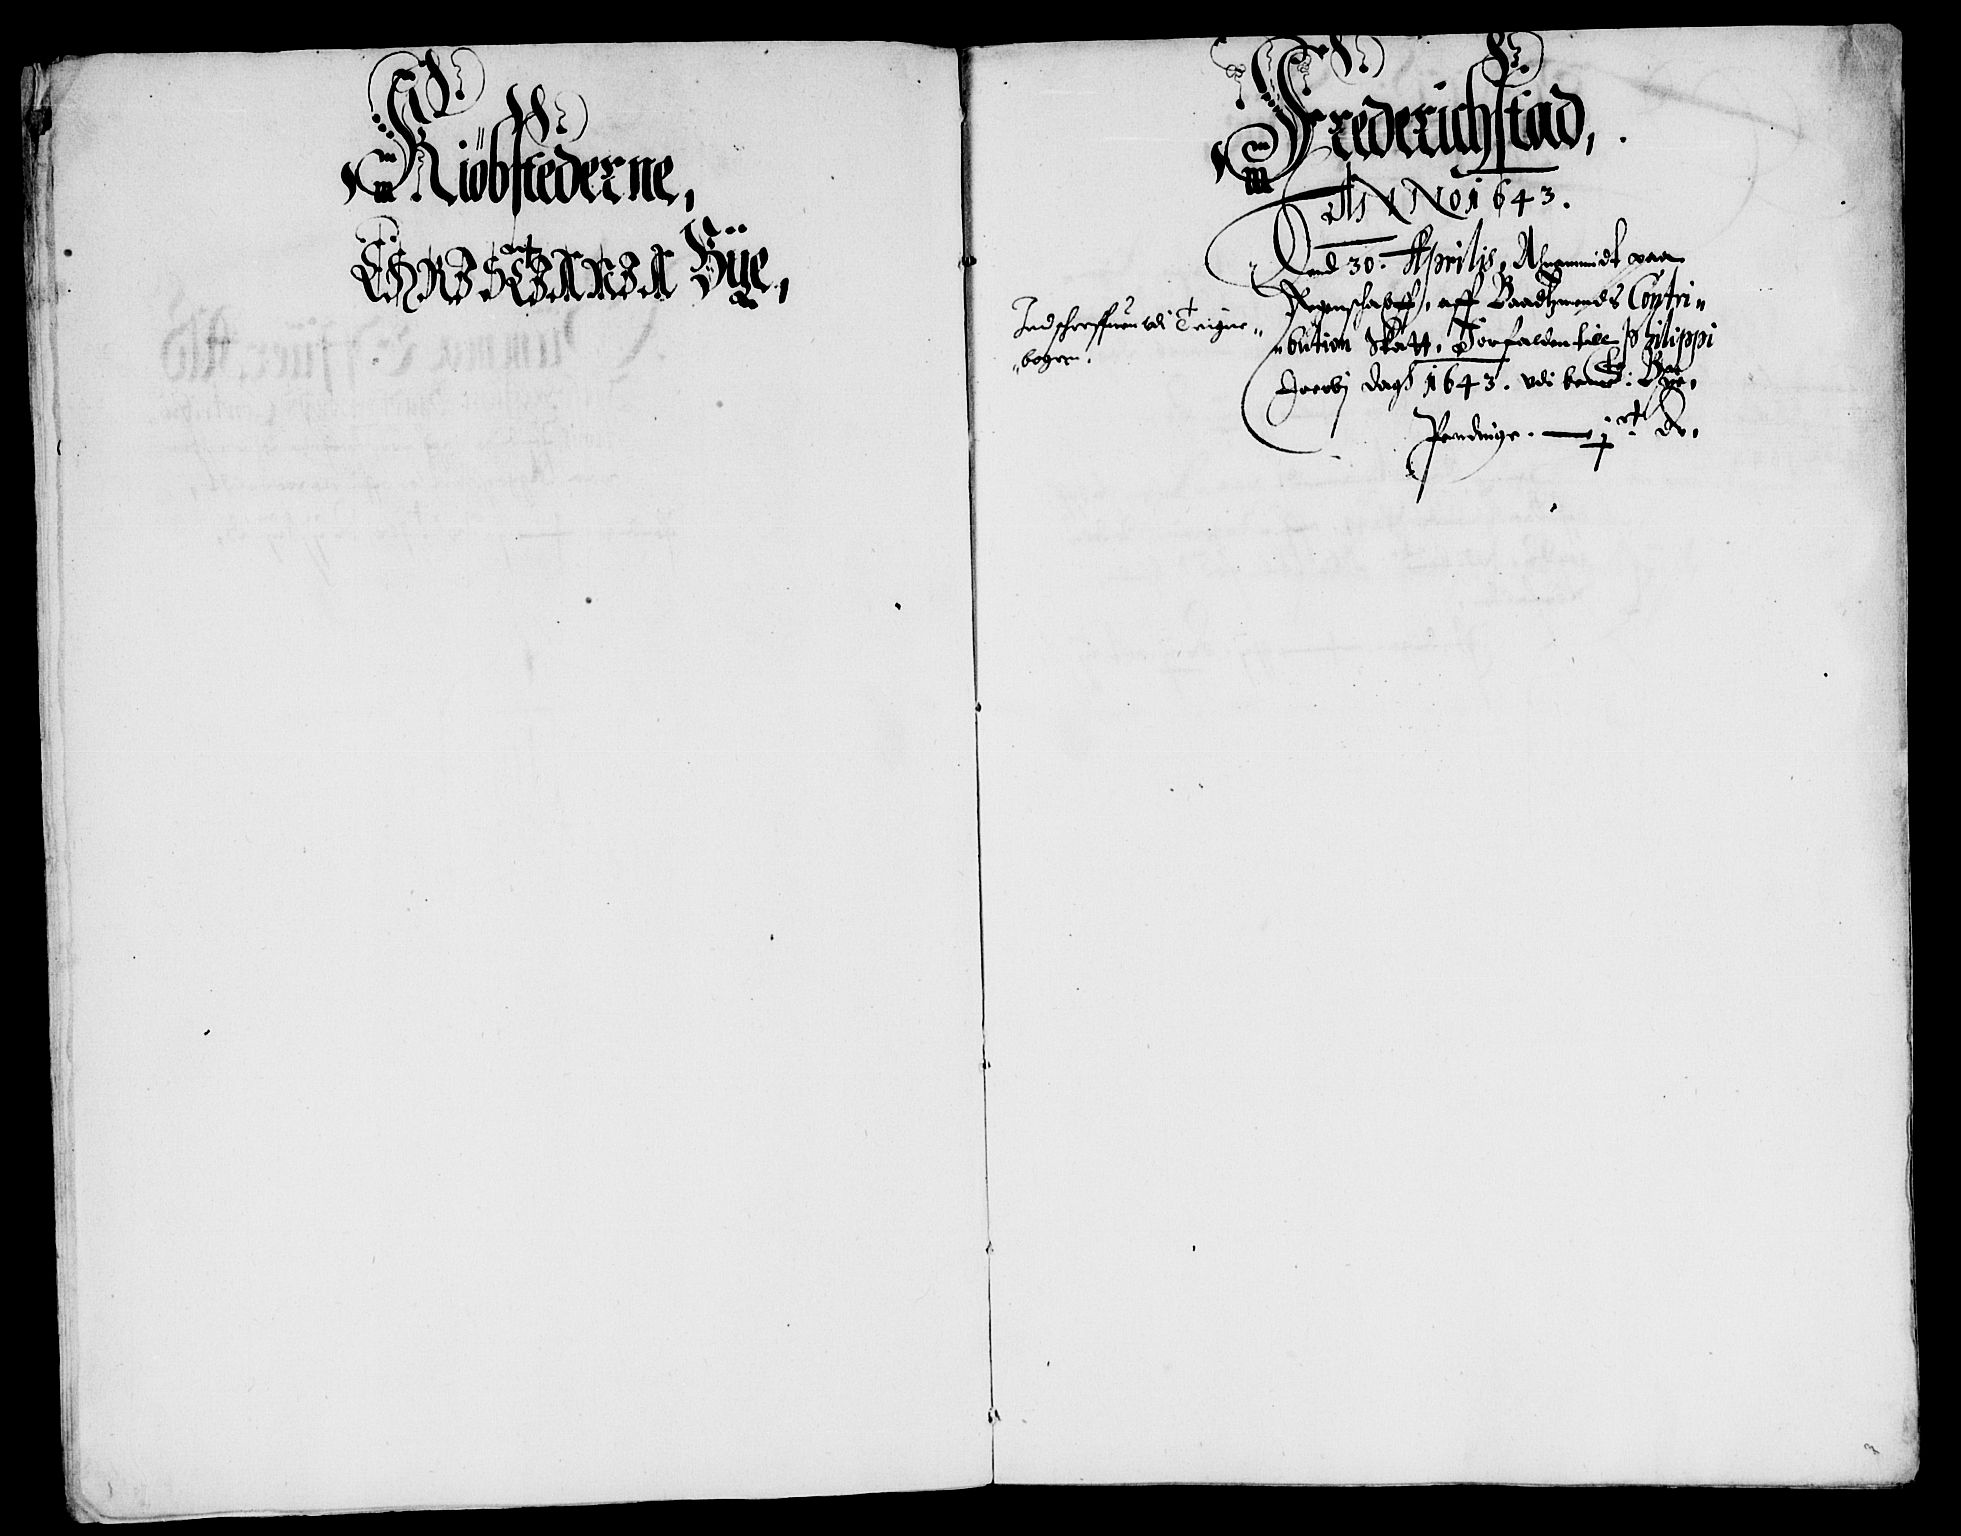 Kiöbstederne,
CHRISTIANIA Bÿe,
Frederichstad,
ANNO 1643.
Dend 30. Aprilis, Annammidt paa
Regenschabff, aff Baadzmends Contri„
„bution Skatt, Forfalden till Philippi
Jacobj dag 1643. vdi bemte: Bye,
Pendinge. — j rt. dr.
Indschreffuen vdi Teigne„
„bogen.
3